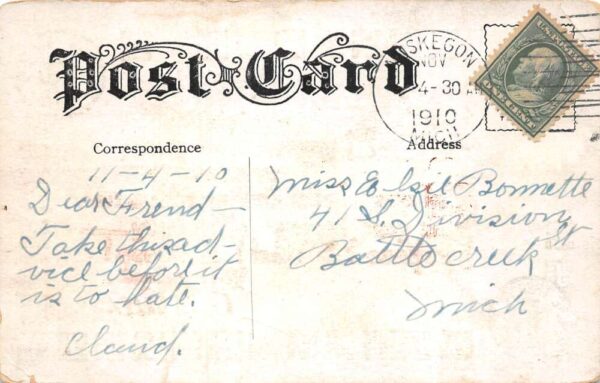 Post Card
MUSKEGON
NOV
4-30 A
1910
MICH
Correspondence
Address
11-4-10
Dear Frend—
Take this ad-
vice before it
is to late.
Claud.
Miss Elsie Bonnette
41 S. Division St
Battle creek
Mich